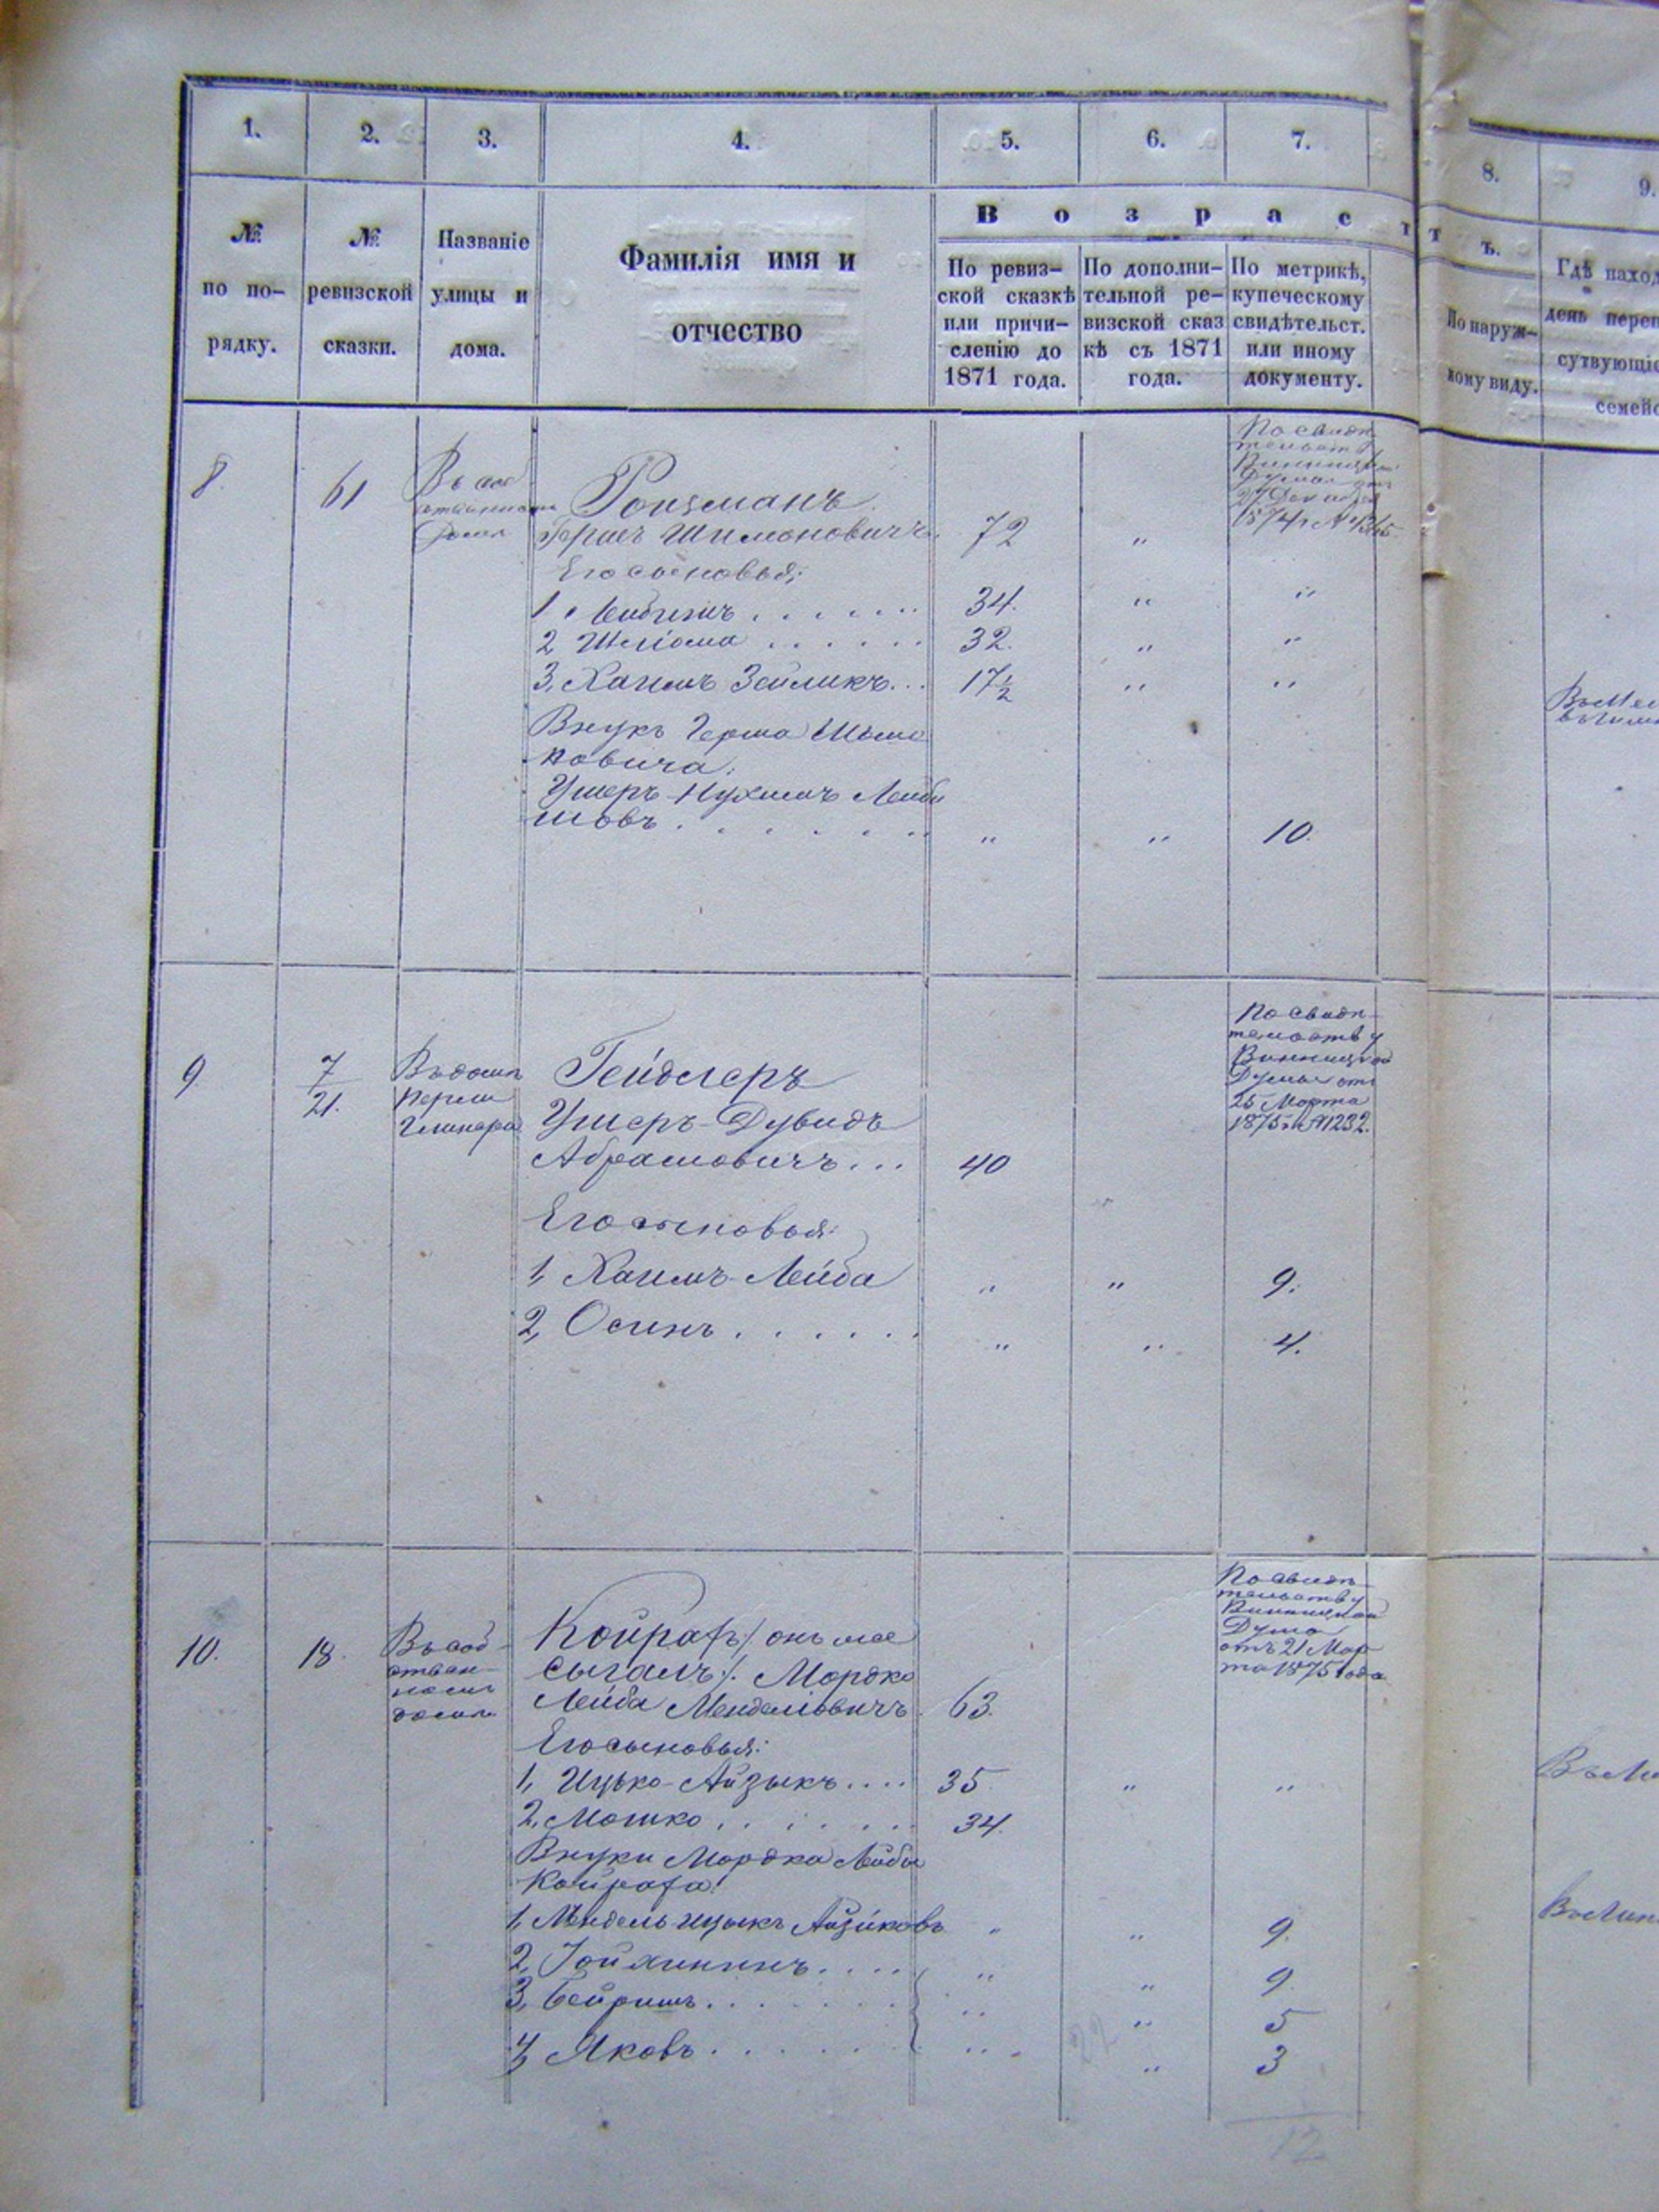 1.
2.
3.
4.
5.
6.
7.
8.
9.
№
по по-
рядку.
№
ревизской
сказки.
Названіе
улицы и
дома.
Фамилія имя и
отчество
В о з р а с т
т ъ.
По ревиз-
ской сказкѣ
или причи-
сленію до
1871 года.
По дополни-
тельной ре-
визской сказ
кѣ съ 1871
года.
По метрикѣ,
купеческому
свидѣтельст.
или иному
документу.
По наруж-
ному виду.
Гдѣ наход
день переп
сутвующіе
семейс
8.
61
Въ соб
ственномъ
домѣ
Гершъ Шимоновичъ
72
"
По свидѣ
тельству
Винницкой
Думы отъ
27 Декабря
1874 г. №
Его сыновья:
1, Лейбишъ . . . . . .
34.
"
"
2, Шліома . . . . . .
32.
"
"
3, Хаимъ Зейликъ...
17½
"
"
Внукъ Герша Шимо
новича:
Ушеръ-Нухимъ Лейби
шовъ . . . . . . .
"
"
10.
9.
7
21.
Въ домѣ
Гейдлеръ
Ушеръ-Дувидъ
Абрамовичъ...
40
По свидѣ
тельству
Винницкой
Думы отъ
25 Марта
1875 г. №1232.
Его сыновья:
1, Хаимъ-Лейба
"
"
9.
2, Осипъ . . . . . .
"
"
4.
10.
18.
Въ соб-
ствен-
номъ
домѣ
Койрафъ /. онъ же
Сыгалъ ./. Мордко
Лейба Менделіовичъ
63.
По свидѣ-
тельству
Винницкой
Думы
отъ 21 Мар
та 1875 года
Его сыновья:
1, Ицько-Айзыкъ....
35
"
"
2, Мошко . . . . . .
34.
Внуки Мордка Лейбы
Койрафа:
1, Мендель Ицыкъ Айзиковъ
"
"
9.
2, ....
"
"
9.
3, Бейришъ . . . . .
"
"
5
4, Яковъ . . . . . .
"
"
3
12